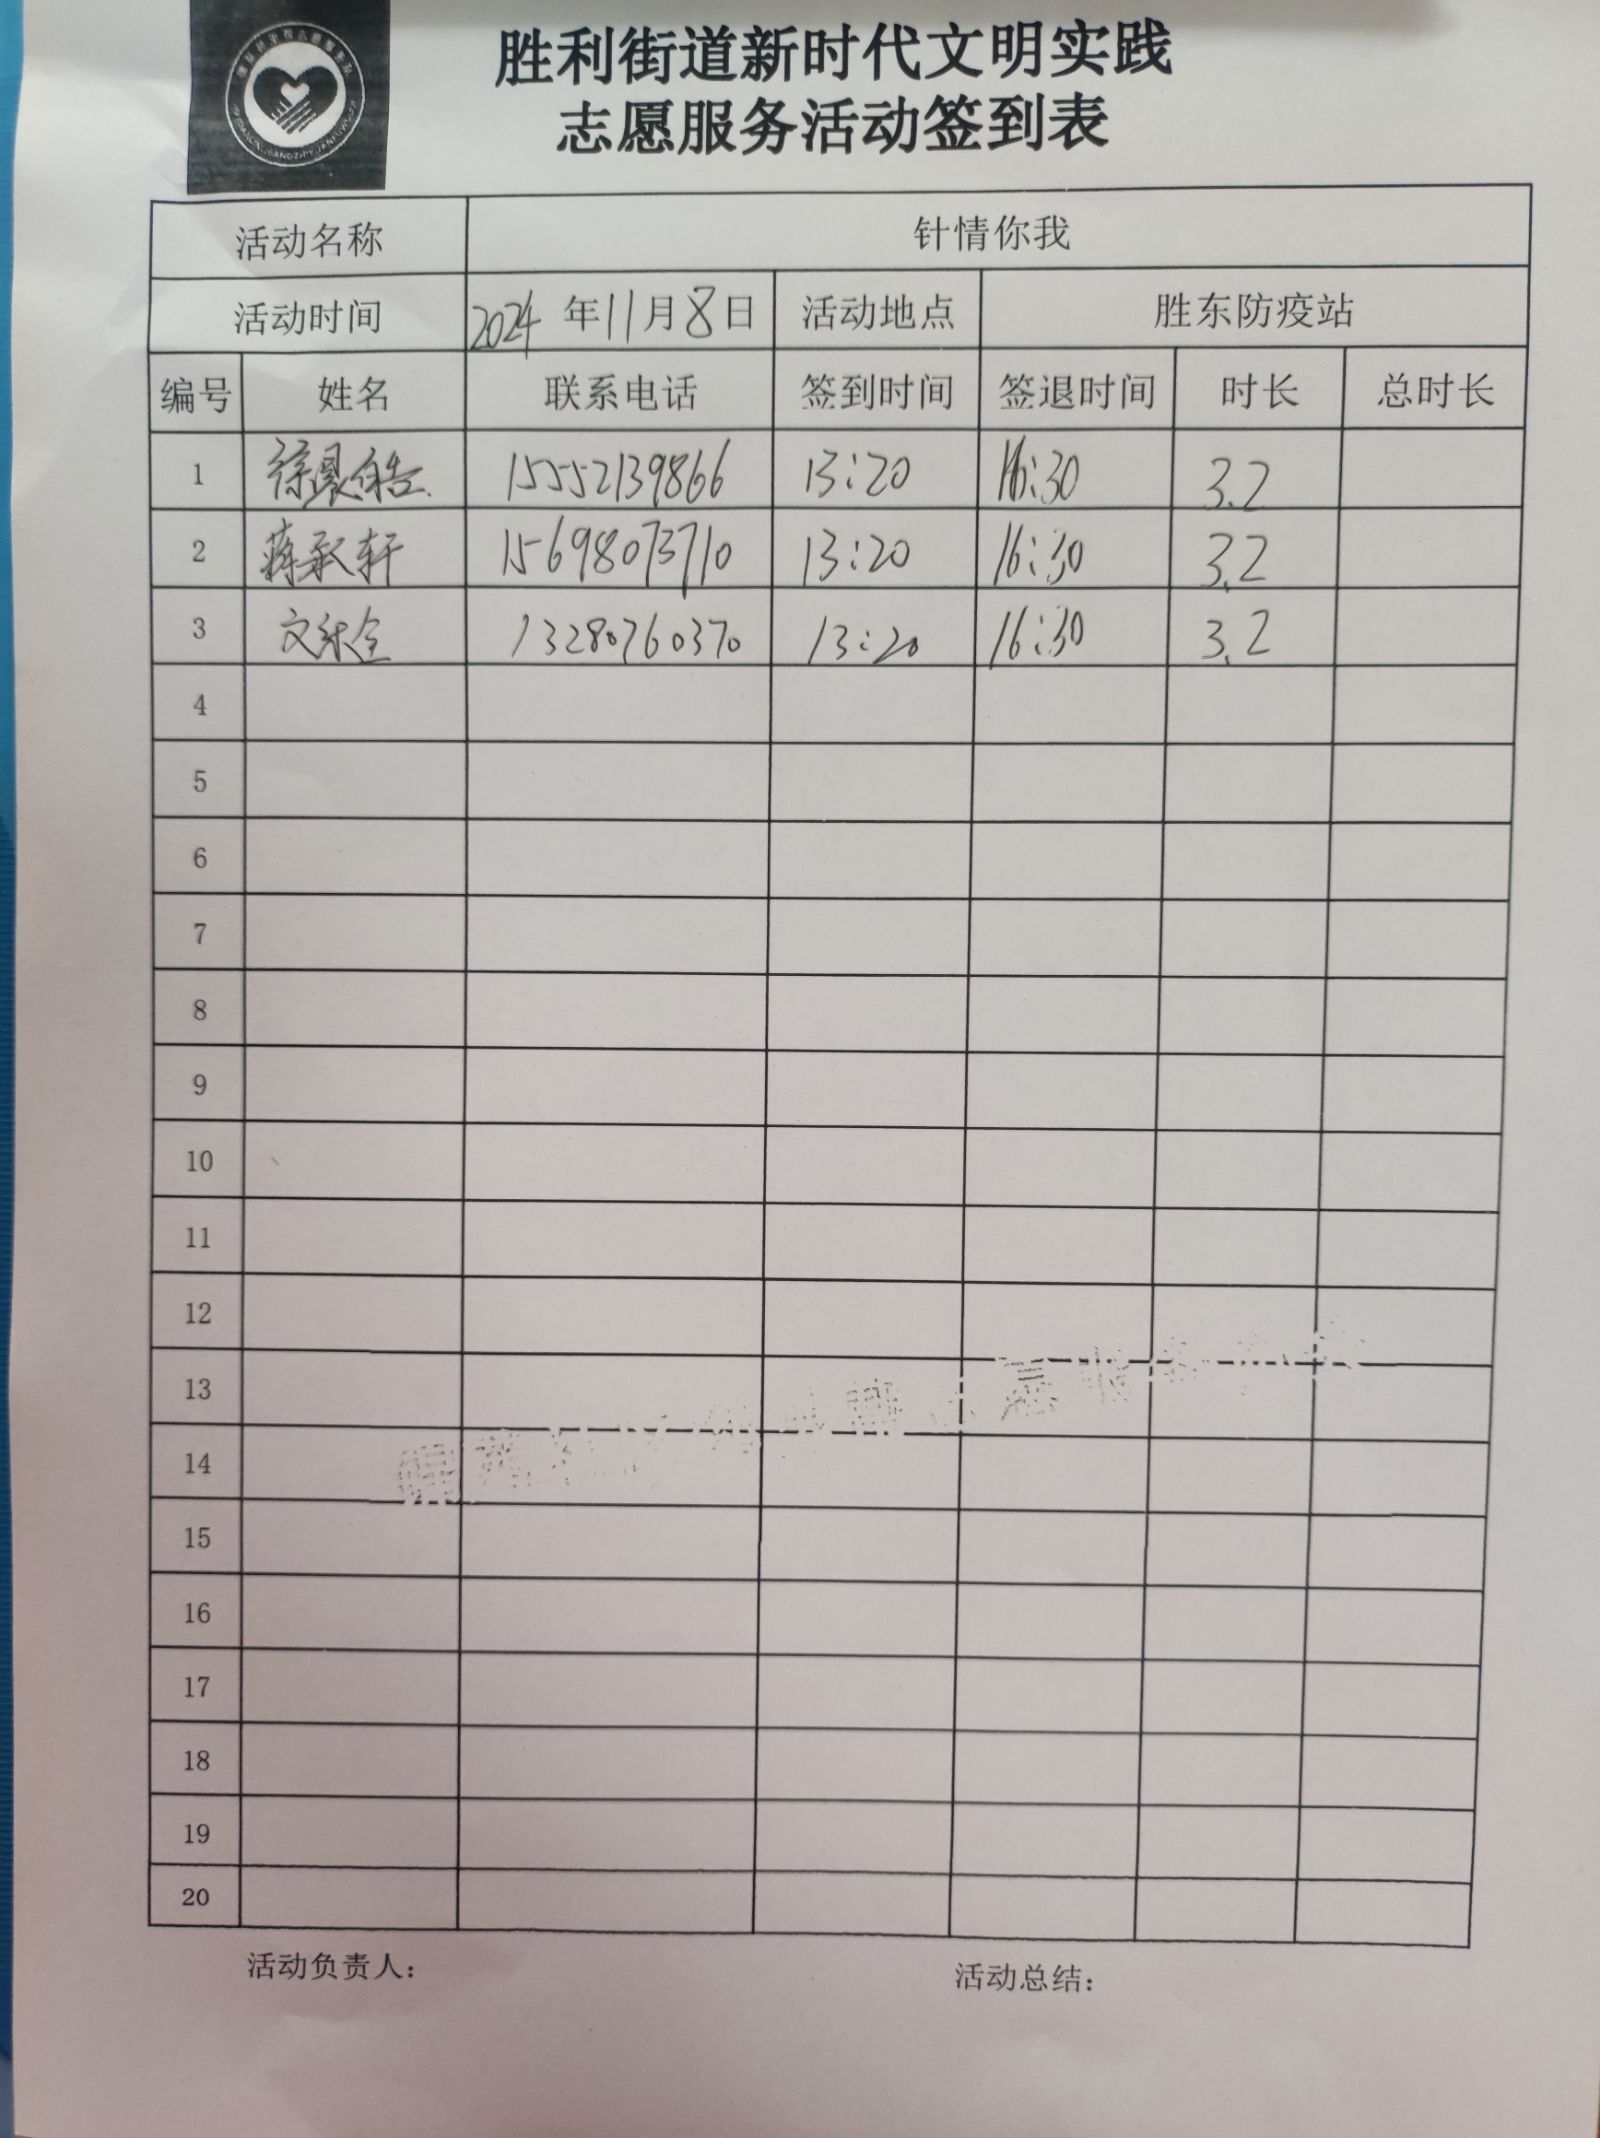 胜利街道新时代文明实践
志愿服务活动签到表
活动名称 针情你我
活动时间 2024 年 11 月 8 日 活动地点 胜东防疫站
编号 姓名 联系电话 签到时间 签退时间 时长 总时长
1 15552139866 13:20 16:30 3.2
2 蒋承轩 15698073710 13:20 16:30 3.2
3 13280760370 13:20 16:30 3.2
4
5
6
7
8
9
10
11
12
13
14
15
16
17
18
19
20
活动负责人： 活动总结：